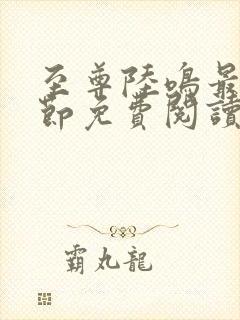 至尊陸鳴最
節免費閱讀
霸丸龍